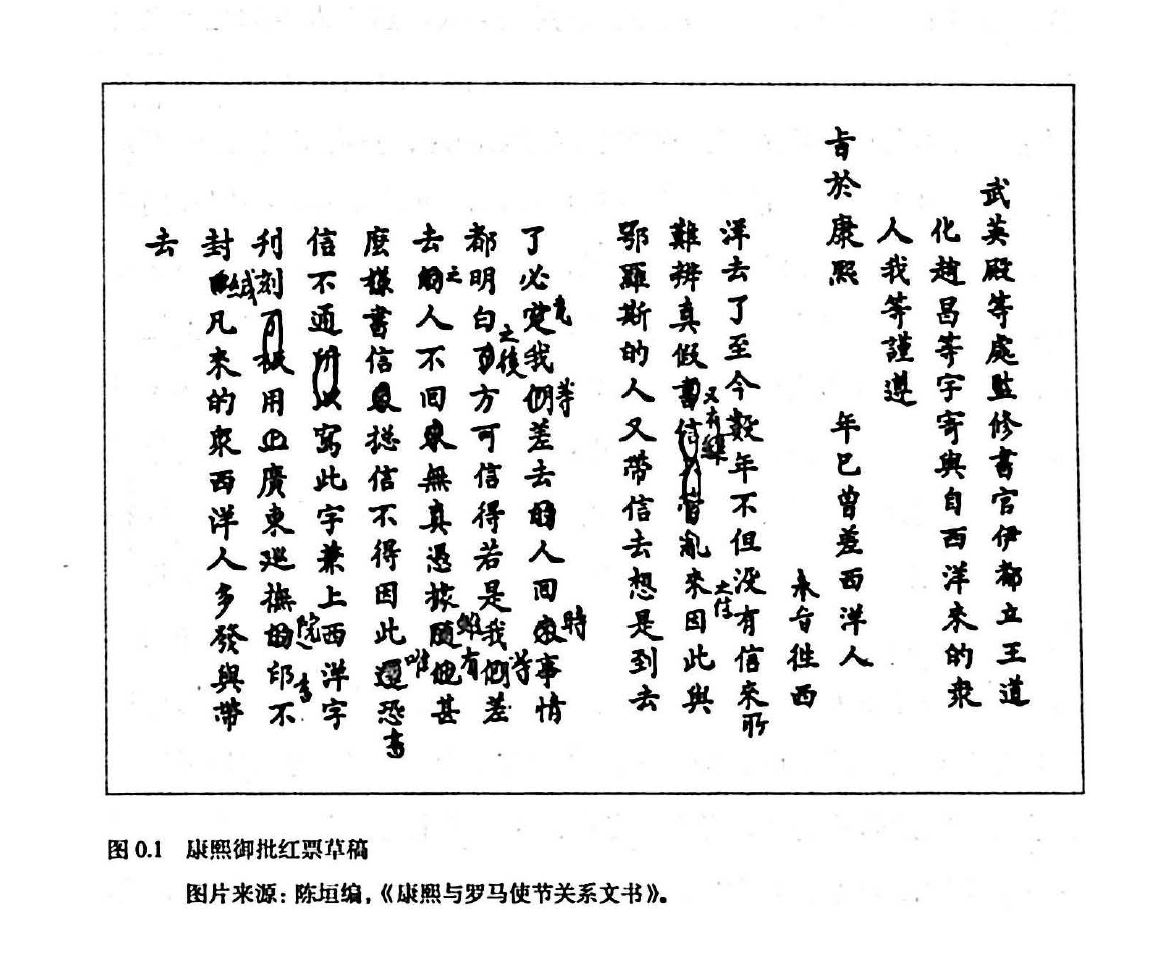 武英殿等處監修書官伊都立王道
化趙昌等字寄與自西洋來的衆
人我等謹遵
旨於康熙　年已曾差西洋人
奉旨徃西
洋去了至今數年不但没有信來所
又有
難辨真假書信亂來因此與
之信
鄂羅斯的人又帶信去想是到去
了必我們差去的人回來事情
等
時
都明白了方可信得若是我們差
之後
等
去的人不回來無真憑據隨他甚
之
雖有
麽樣書信總信不得因此還恐
唯
書
信不通所以寫此字兼上西洋字
刋刻板用廣東廵撫的印不
院
書
封緘凡來的衆西洋人多發與帶
去
图 0.1　康熙御批红票草稿
图片来源：陈垣编，《康熙与罗马使节关系文书》。